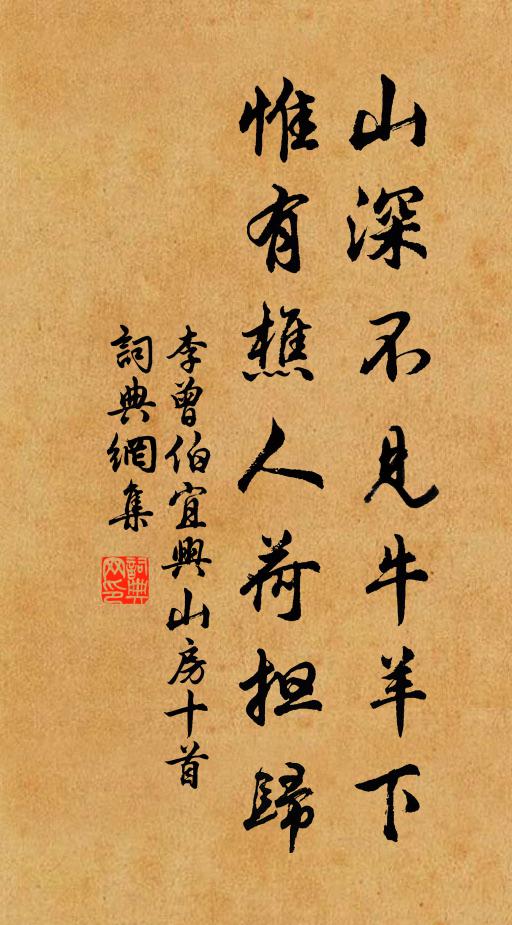 山深不見牛羊下
惟有樵人荷担歸
李曾伯宜興山房十首
詞典網集
詞典網印